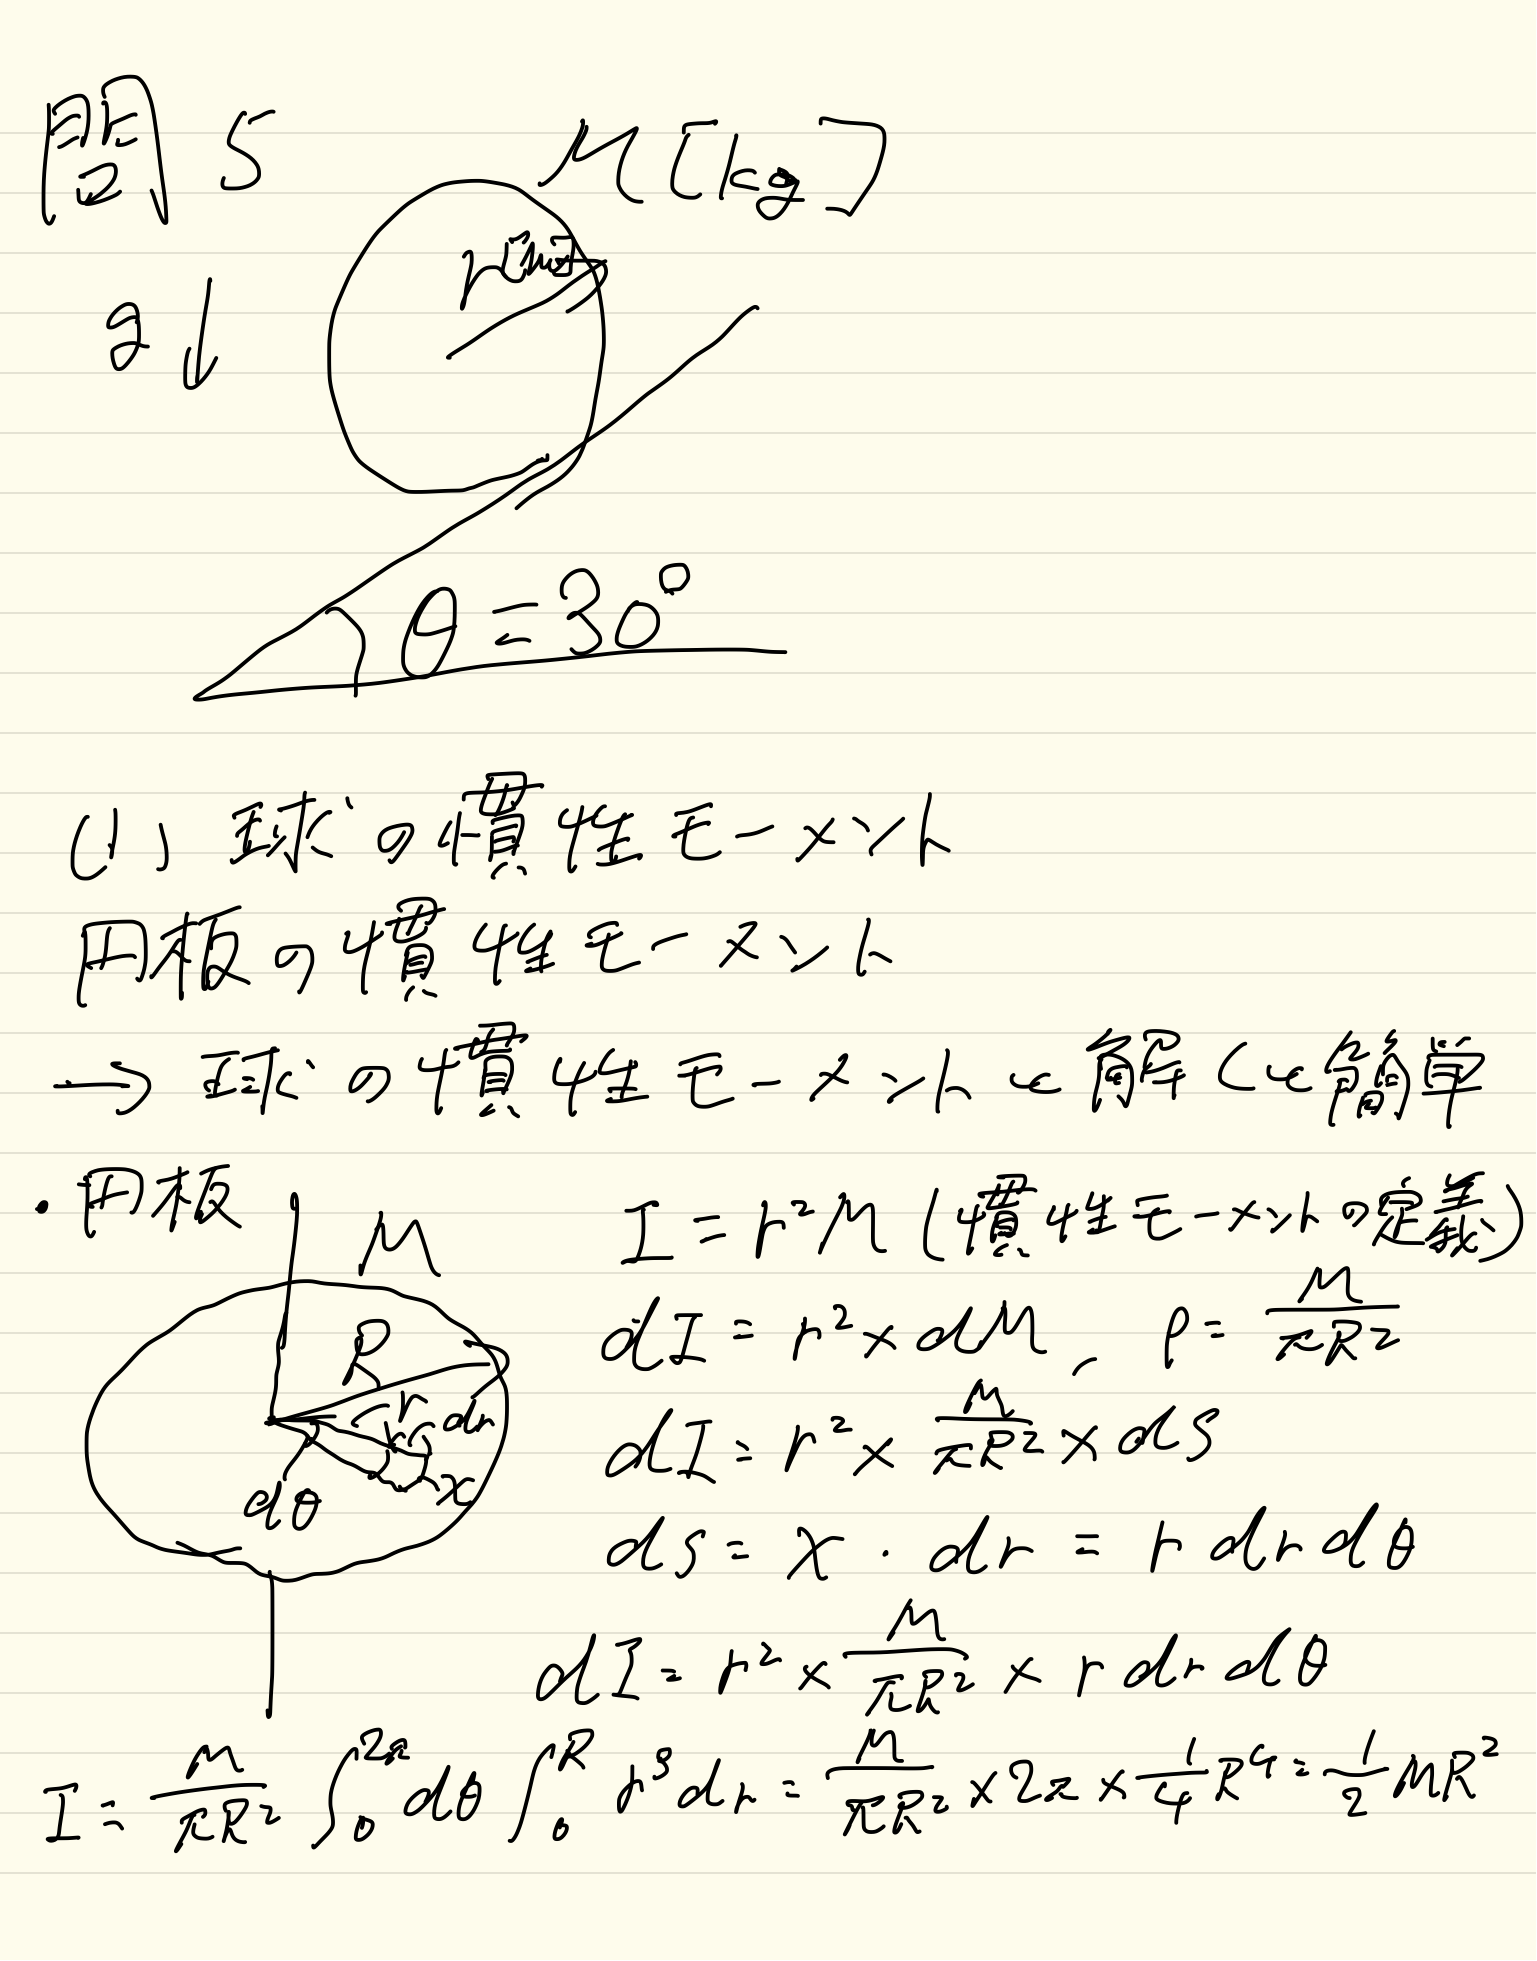 問5
M[kg]
r[m]
g↓
θ=30°
(1) 球の慣性モーメント
円板の慣性モーメント
→球の慣性モーメントと解くと簡単
・円板
M
R
r
dr
x
dθ
I = r²M (慣性モーメントの定義)
dI = r² × dM, ρ = M/πR²
dI = r² × M/πR² × dS
dS = x · dr = r dr dθ
dI = r² × M/πR² × r dr dθ
I = M/πR² ∫₀^2π dθ ∫₀^R r³ dr = M/πR² × 2π × 1/4 R⁴ = 1/2 MR²